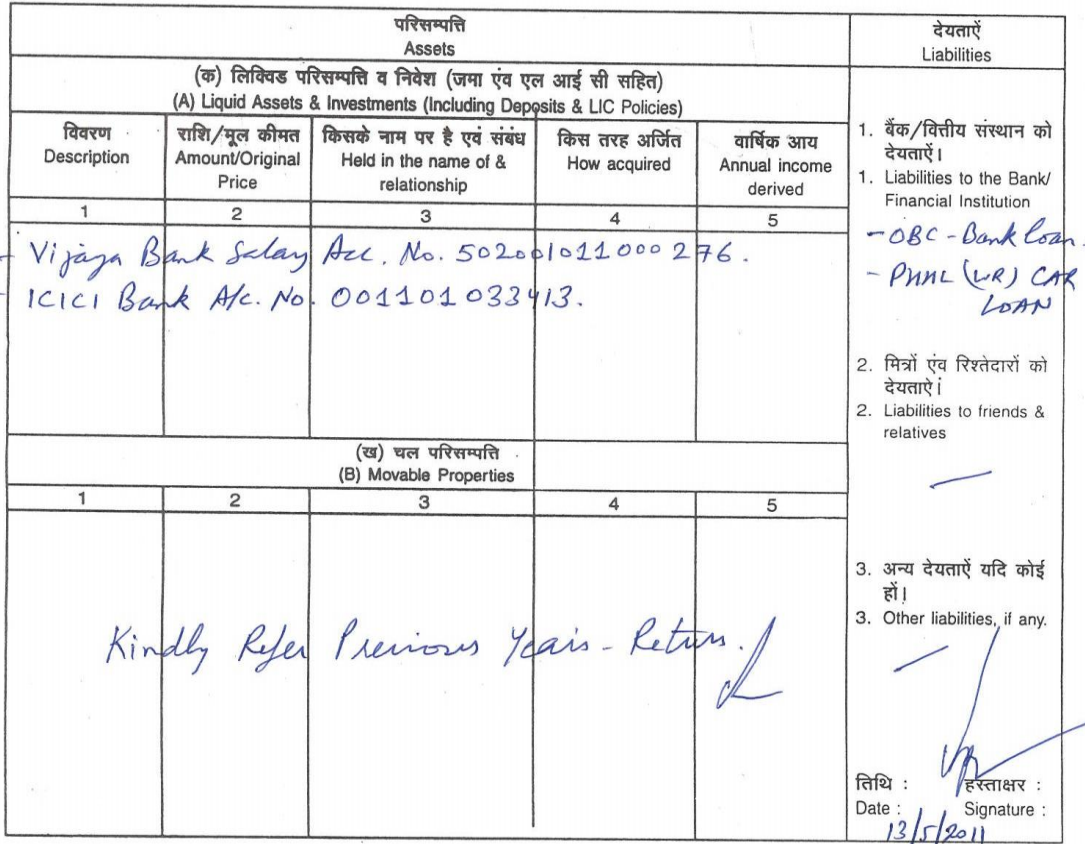 परिसम्पत्ति
Assets
(क) लिक्विड परिसम्पत्ति व निवेश (जमा एंव एल आई सी सहित)
(A) Liquid Assets & Investments (Including Deposits & LIC Policies)
विवरण
Description
राशि/मूल कीमत
Amount/Original
Price
किसके नाम पर है एवं संबंध
Held in the name of &
relationship
किस तरह अर्जित
How acquired
वार्षिक आय
Annual income
derived
1 2 3 4 5
- Vijaya Bank Salary Acc. No. 502001011000276.
- ICICI Bank A/c. No. 001101033413.
(ख) चल परिसम्पत्ति
(B) Movable Properties
1 2 3 4 5
Kindly Refer Previous Years - Return.
देयताऐं
Liabilities
1. बैंक/वित्तीय संस्थान को
देयताऐं।
1. Liabilities to the Bank/
Financial Institution
- OBC - Bank loan.
- PHHL (WR) CAR
LOAN
2. मित्रों एंव रिश्तेदारों को
देयताऐं।
2. Liabilities to friends &
relatives
—
3. अन्य देयताऐं यदि कोई
हों।
3. Other liabilities, if any.
—
तिथि : हस्ताक्षर :
Date : Signature :
13/5/2011